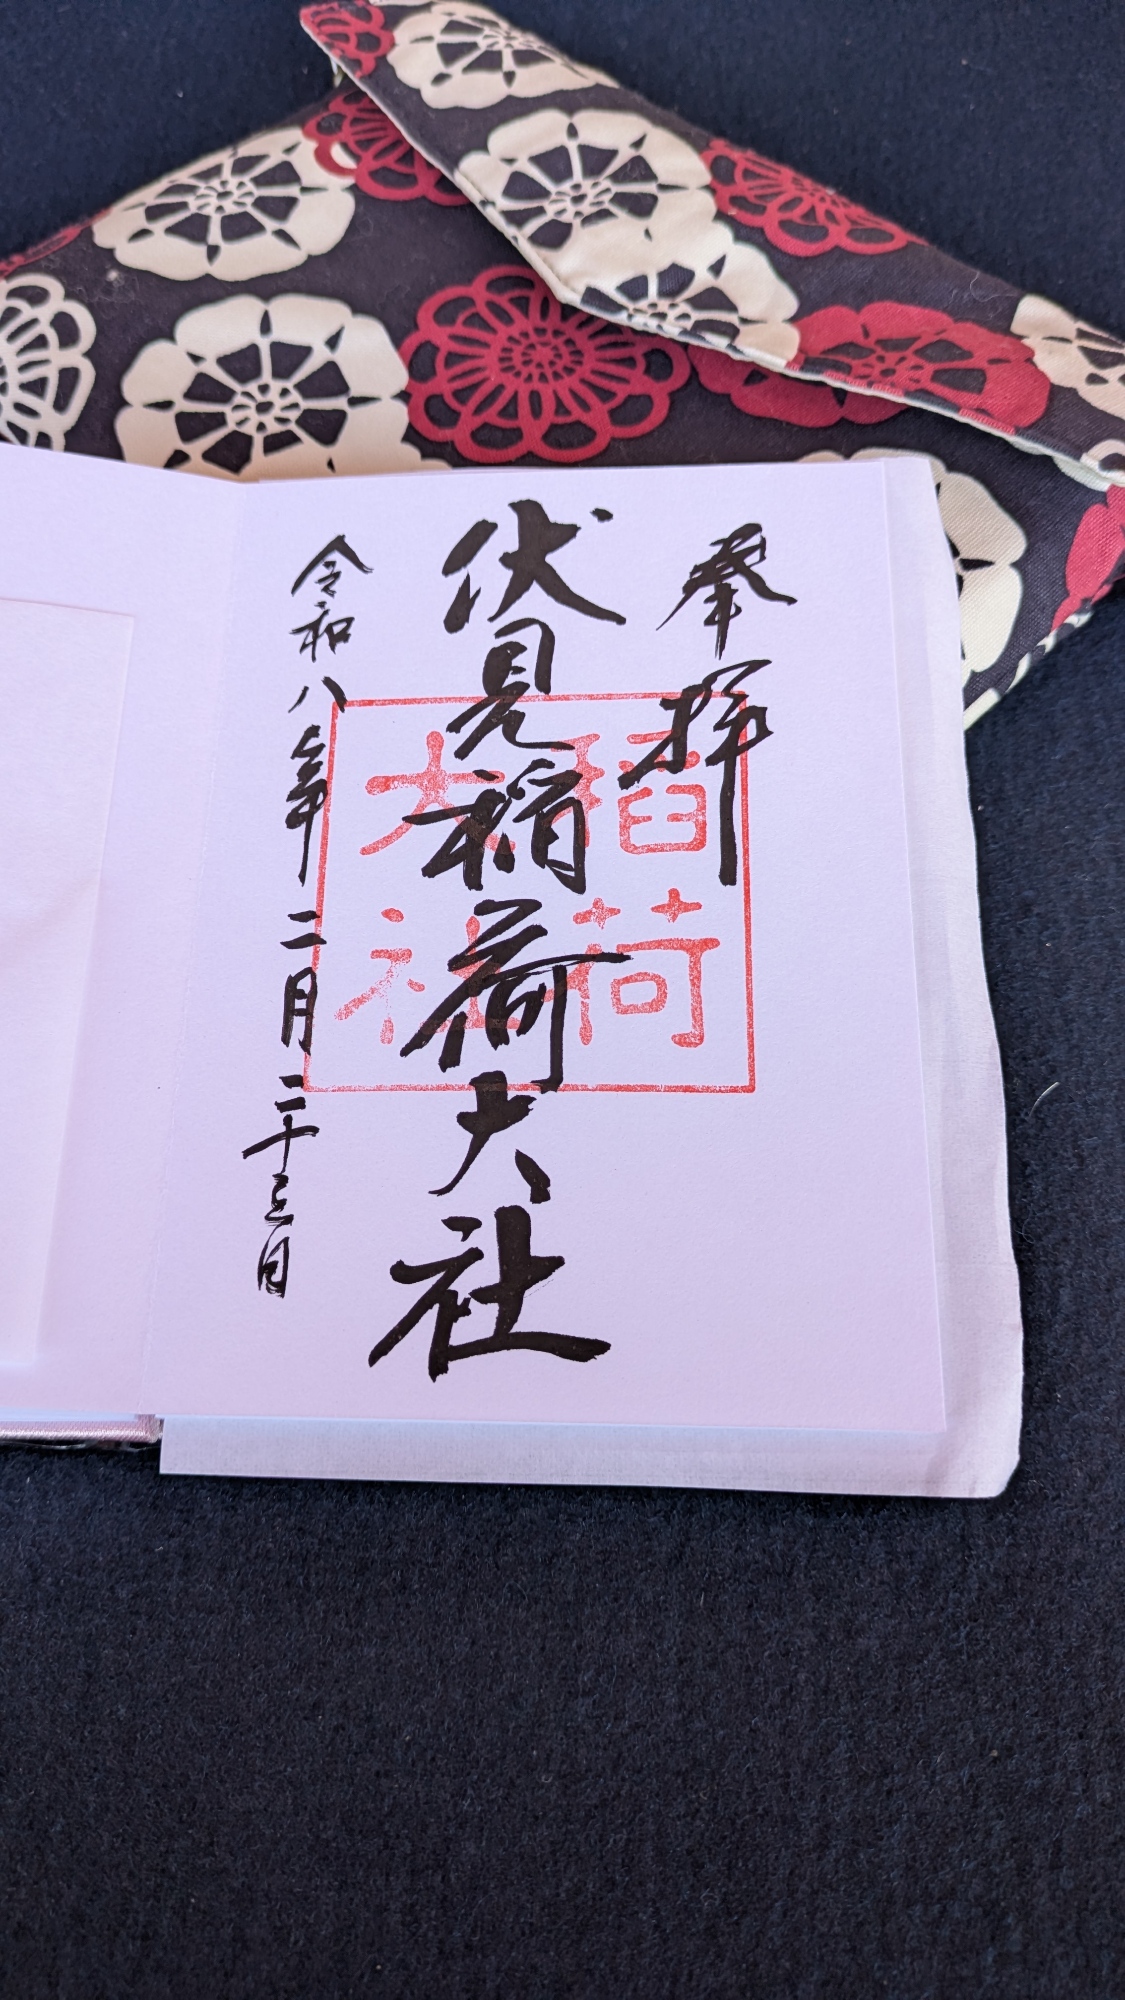 奉拝
伏見稲荷大社
令和八年二月二十三日
稲荷
大社